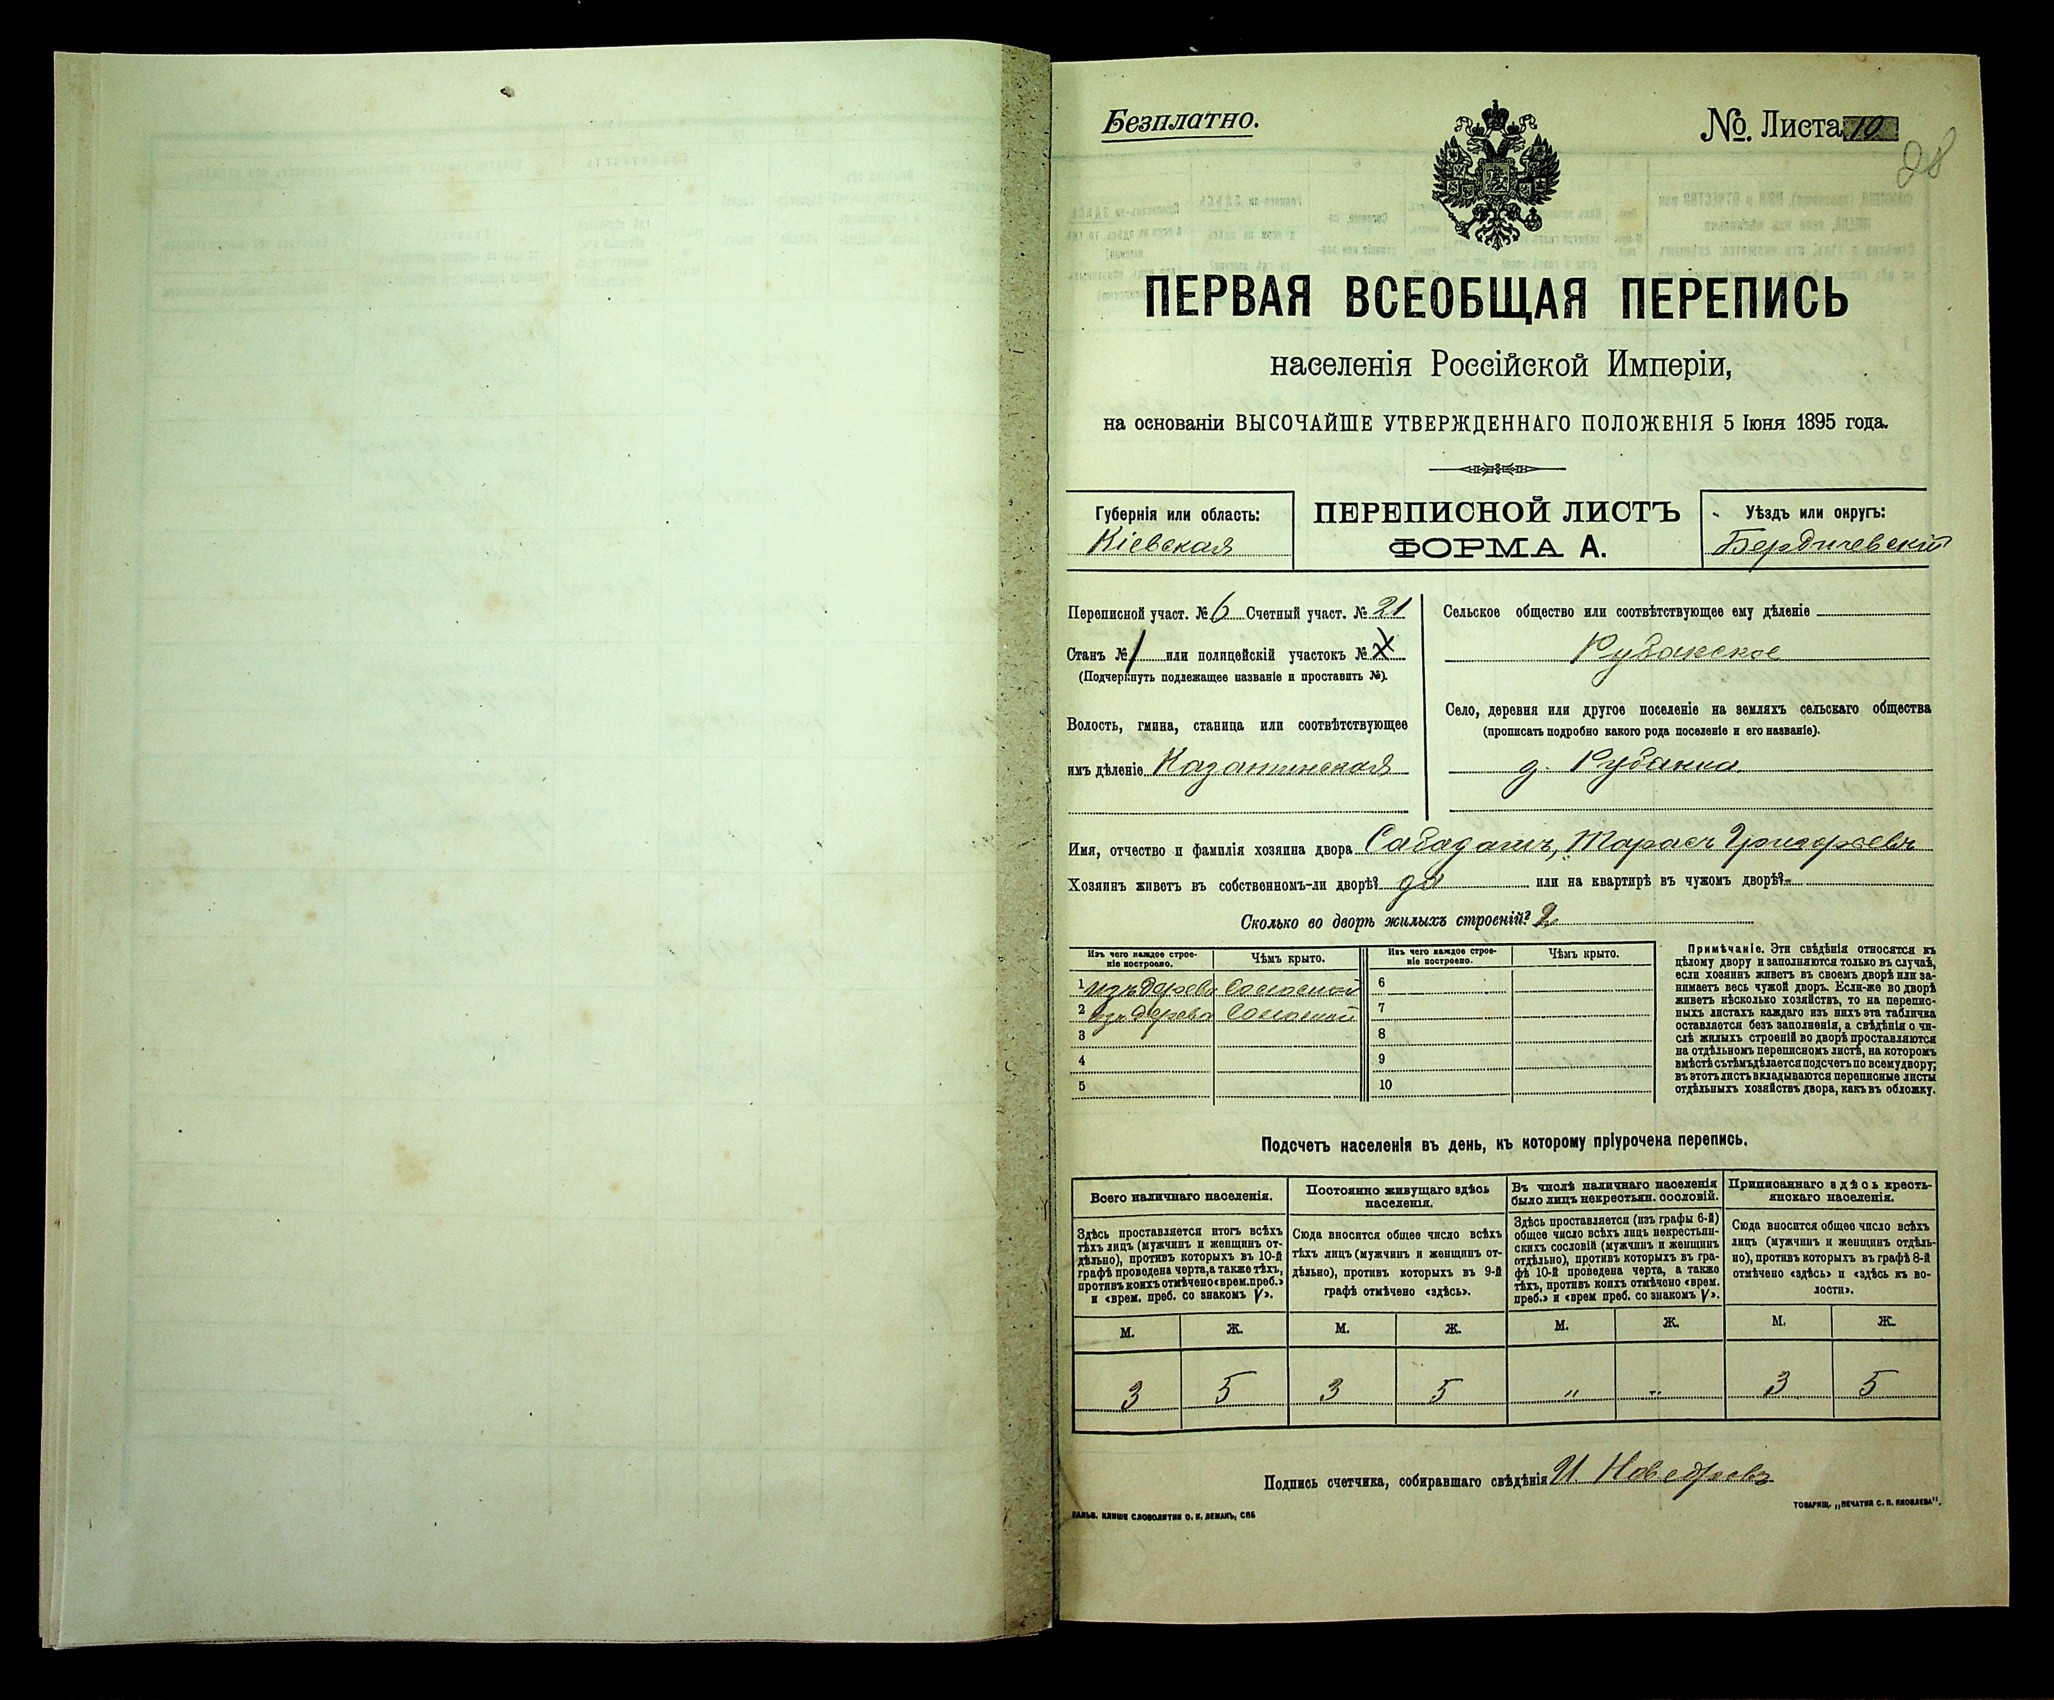 Безплатно.
№. Листа 10
28
ПЕРВАЯ ВСЕОБЩАЯ ПЕРЕПИСЬ
населенія Россійской Имперіи,
на основаніи ВЫСОЧАЙШЕ УТВЕРЖДЕННАГО ПОЛОЖЕНІЯ 5 Іюня 1895 года.
Губернія или область:
Кіевская
ПЕРЕПИСНОЙ ЛИСТЪ
ФОРМА А.
Уѣздъ или округъ:
Бердичевскій
Переписной участ. № 6 Счетный участ. № 21
Станъ № 1 или полицейскій участокъ №
(Подчеркнуть подлежащее названіе и проставить №).
Волость, гмина, станица или соотвѣтствующее
имъ дѣленіе Казатинская
Сельское общество или соотвѣтствующее ему дѣленіе
Рубанское
Село, деревня или другое поселеніе на земляхъ сельскаго общества
(прописать подробно какого рода поселеніе и его названіе).
д. Рубанка
Имя, отчество и фамилія хозяина двора Сабадашъ, Тарасъ Григорьевъ
Хозяинъ живетъ въ собственномъ-ли дворѣ? да или на квартирѣ въ чужомъ дворѣ? -
Сколько во дворѣ жилыхъ строеній? 2
Изъ чего каждое строе-
ніе построено.
Чѣмъ крыто.
Изъ чего каждое строе-
ніе построено.
Чѣмъ крыто.
1 изъ дерева соломой 6
2 изъ дерева соломой 7
3 8
4 9
5 10
Примѣчаніе. Эти свѣдѣнія относятся къ
цѣлому двору и заполняются только въ случаѣ,
если хозяинъ живетъ въ своемъ дворѣ или за-
нимаетъ весь чужой дворъ. Если-же во дворѣ
живетъ нѣсколько хозяйствъ, то на перепис-
ныхъ листахъ каждаго изъ нихъ эта табличка
оставляется безъ заполненія, а свѣдѣнія о чи-
слѣ жилыхъ строеній во дворѣ проставляются
на отдѣльномъ переписномъ листѣ, на которомъ
вмѣстѣ съ тѣмъ дѣлается подсчетъ по всему двору;
въ этотъ листъ вкладываются переписные листы
отдѣльныхъ хозяйствъ двора, какъ въ обложку.
Подсчетъ населенія въ день, къ которому пріурочена перепись.
Всего наличнаго населенія.
Здѣсь проставляется итогъ всѣхъ
тѣхъ лицъ (мужчинъ и женщинъ от-
дѣльно), противъ которыхъ въ 10-й
графѣ проведена черта, а также тѣхъ,
противъ коихъ отмѣчено «врем. преб.»
и «врем. преб. со знакомъ V».
Постоянно живущаго здѣсь
населенія.
Сюда вносится общее число всѣхъ
тѣхъ лицъ (мужчинъ и женщинъ от-
дѣльно), противъ которыхъ въ 9-й
графѣ отмѣчено «здѣсь».
Въ числѣ наличнаго населенія
было лицъ некрестьян. сословій.
Здѣсь проставляется (изъ графы 6-й)
общее число всѣхъ лицъ некрестьян-
скихъ сословій (мужчинъ и женщинъ
отдѣльно), противъ которыхъ въ гра-
фѣ 10-й проведена черта, а также
тѣхъ, противъ коихъ отмѣчено «врем.
преб.» и «врем преб. со знакомъ V».
Приписаннаго здѣсь кресть-
янскаго населенія.
Сюда вносится общее число всѣхъ
лицъ (мужчинъ и женщинъ отдѣль-
но), противъ которыхъ въ графѣ 8-й
отмѣчено «здѣсь» и «здѣсь къ во-
лости».
М. Ж. М. Ж. М. Ж. М. Ж.
3 5 3 5 " " 3 5
Подпись счетчика, собиравшаго свѣдѣнія И.
ГАЛЬВ. КЛИШЕ СЛОВОЛИТНИ О. И. ЛЕМАНЪ, СПБ
ТОВАРИЩ. „ПЕЧАТНЯ С. П. ЯКОВЛЕВА".